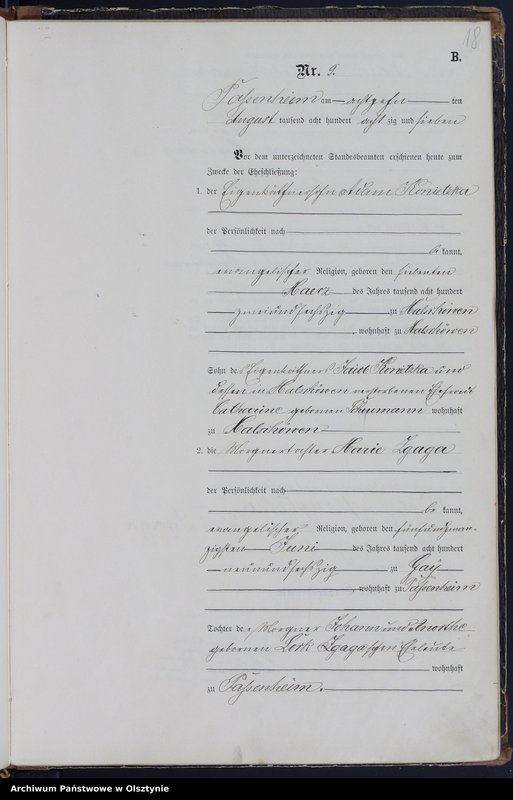 18
B.
Nr. 9.
Passenheim am achtzehn ten
August tausend acht hundert acht zig und sieben
Vor dem unterzeichneten Standesbeamten erschienen heute zum
Zwecke der Eheschließung:
1. der Eigenkäthnersohn Adam
der Persönlichkeit nach
be kannt,
evangelischer Religion, geboren den siebenten
Maerz des Jahres tausend acht hundert
zweiundsechszig zu Malschöwen
, wohnhaft zu Malschöwen
Sohn des Eigenkäthners und
dessen in Malschöwen verstorbenen Ehefrau
Catharine geborenen wohnhaft
zu Malschöwen
2. die Morgnertochter Marie Zgaga
der Persönlichkeit nach
be kannt,
evangelischer Religion, geboren den fünfundzwan-
zigsten Juni des Jahres tausend acht hundert
neunundsechszig zu
, wohnhaft zu Passenheim
Tochter der Morgner Johann und
geborenen Zgaga'schen Eheleute
wohnhaft
zu Passenheim.
Archiwum Państwowe w Olsztynie